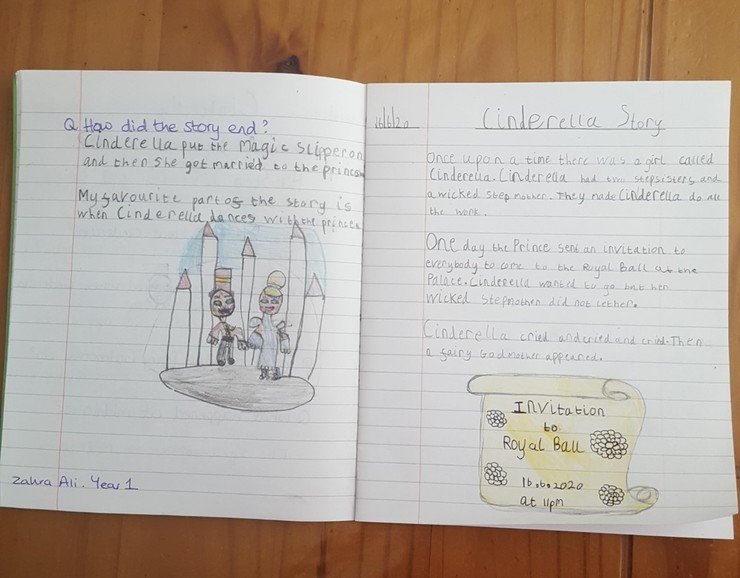 Q How did the story end?
Cinderella put the Magic Slipper on
and then she got married to the prince
My favourite part of the story is
when Cinderella dances with the prince.
Zahra Ali. Year 1
16/6/20
Cinderella Story
Once upon a time there was a girl called
Cinderella. Cinderella had two stepsisters and
a wicked step mother. They made Cinderella do all
the work.
One day the Prince sent an invitation to
everybody to come to the Royal Ball at the
Palace. Cinderella wanted to go but her
wicked stepmother did not let her.
Cinderella cried and cried and cried. Then
a fairy Godmother appeared.
Invitation
to
Royal Ball
16.6.2020
at 11pm